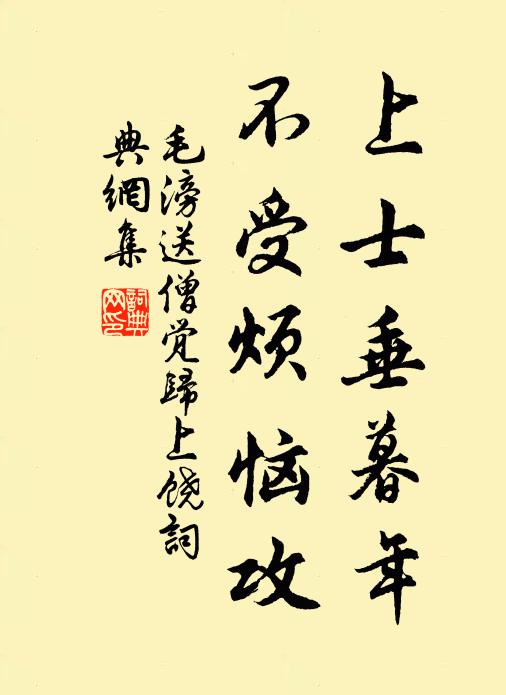 上士垂暮年
不受烦恼攻
毛滂送僧覚歸上饶詞
典網集
詞典
网印